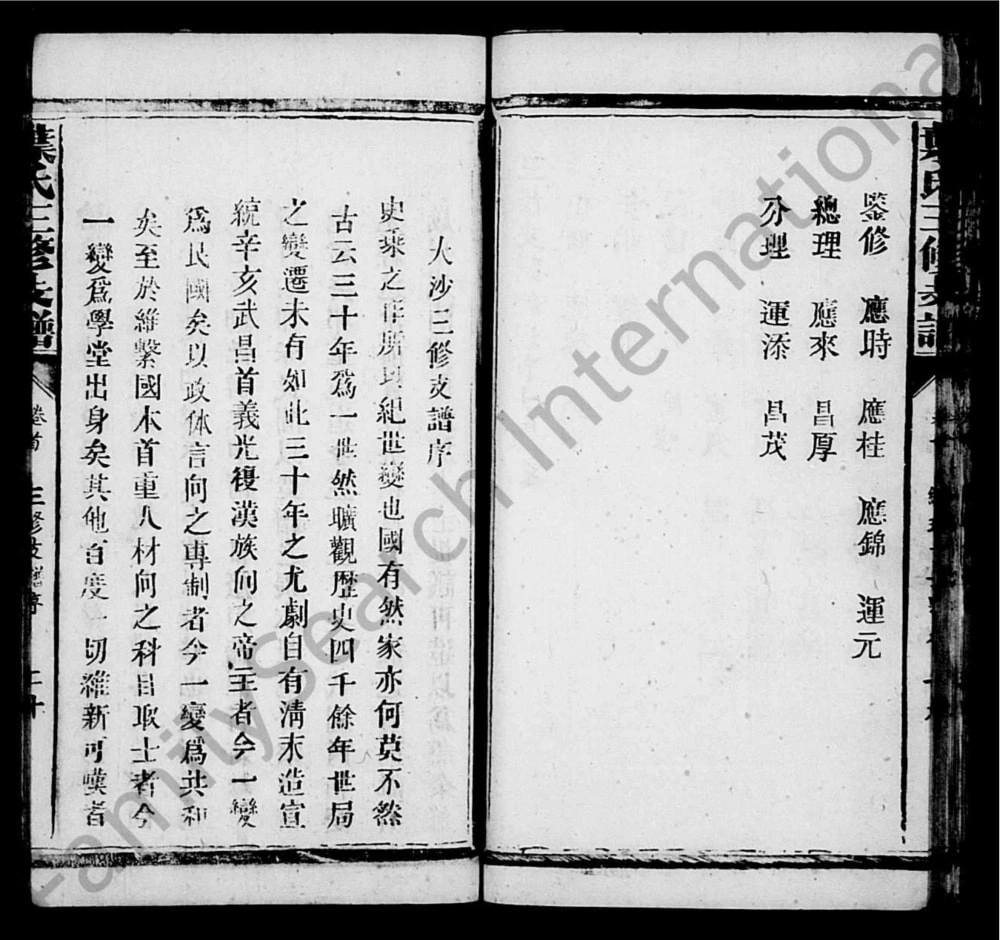 葉氏三修支譜
鑒修 應時 應桂 應錦 運元
總理 應來 昌厚
分理 運添 昌茂
大沙三修支譜序
史乘之作所以紀世變也國有然家亦何莫不然
古云三十年爲一世然曠觀歷史四千餘年世局
之變遷未有如此三十年之尤劇自有清末造宣
統辛亥武昌首義光復漢族向之帝王者今一變
爲民國矣以政体言向之專制者今一變爲共和
矣至於維繫國本首重人材向之科目取士者今
一變爲學堂出身矣其他百度一切維新可嘆者
葉氏三修支譜
卷首
三修支譜序
二十
FamilySearch International